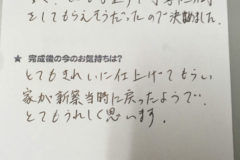 をしてもらえそうだったので決めました。
★ 完成後の今のお気持ちは？
とてもきれいに仕上げてもらい
家が新築当時に戻ったようで、
とてもうれしく思います。